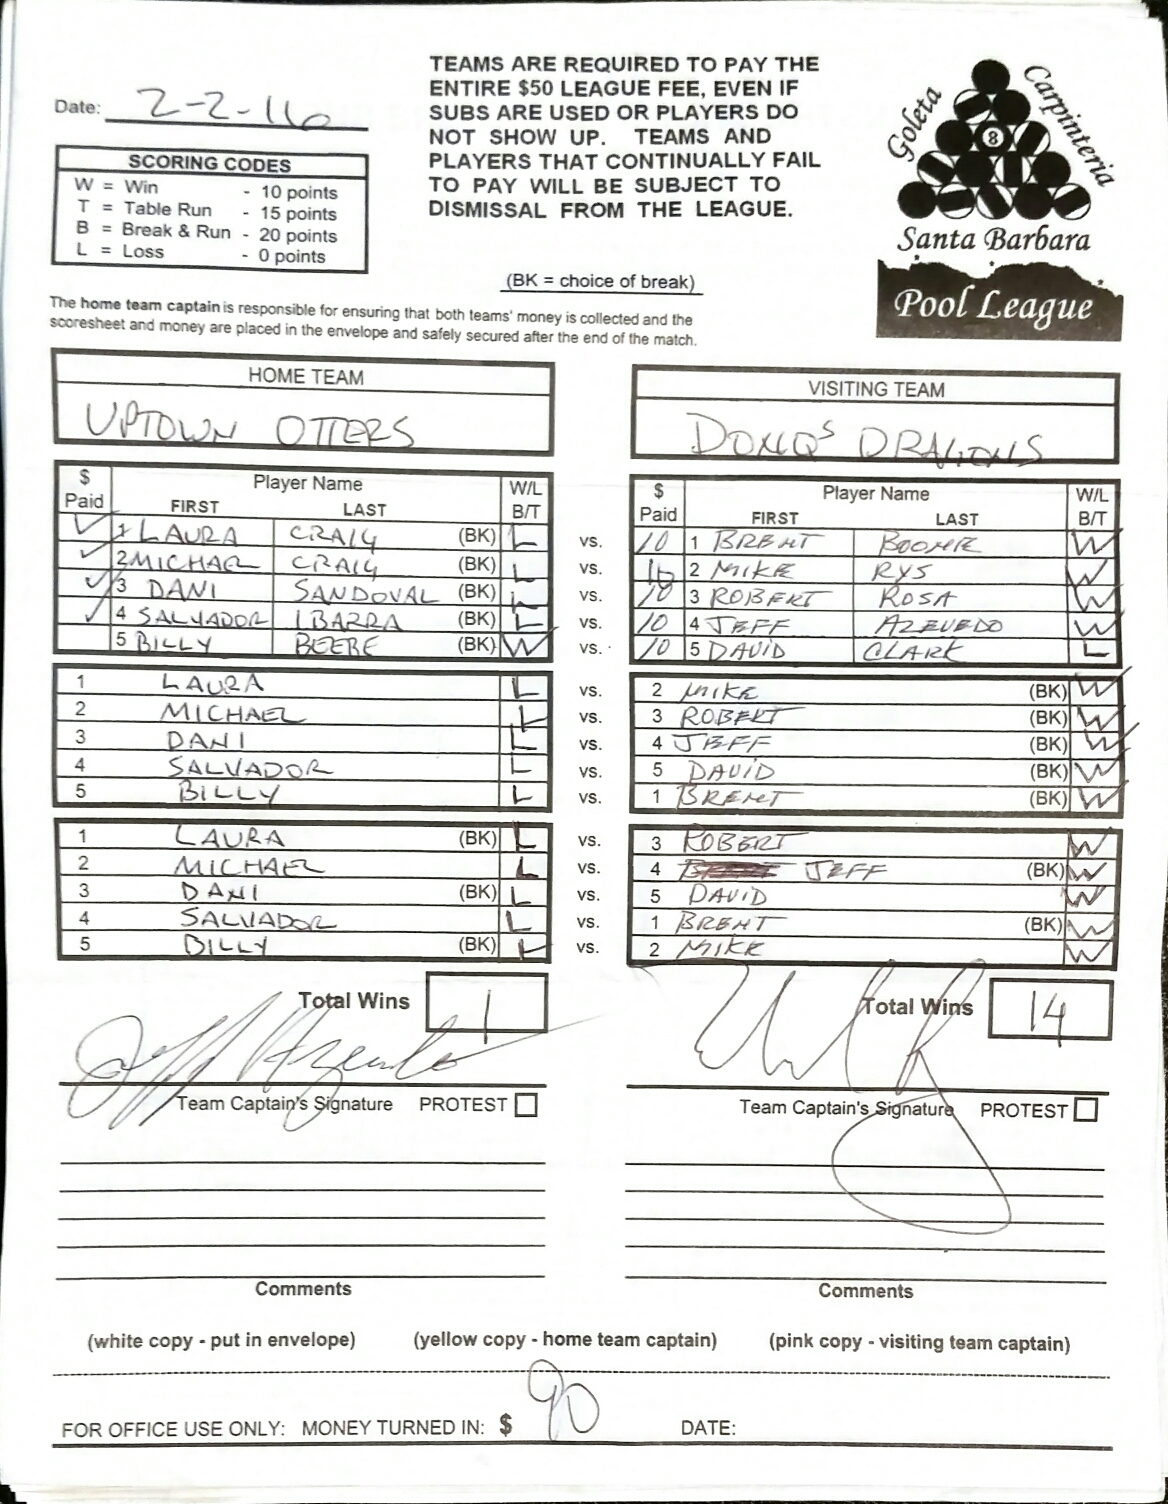 Date: 2-2-16
TEAMS ARE REQUIRED TO PAY THE
ENTIRE $50 LEAGUE FEE, EVEN IF
SUBS ARE USED OR PLAYERS DO
NOT SHOW UP. TEAMS AND
PLAYERS THAT CONTINUALLY FAIL
TO PAY WILL BE SUBJECT TO
DISMISSAL FROM THE LEAGUE.
Goleta Carpinteria
8
Santa Barbara
Pool League
SCORING CODES
W = Win - 10 points
T = Table Run - 15 points
B = Break & Run - 20 points
L = Loss - 0 points
(BK = choice of break)
The home team captain is responsible for ensuring that both teams' money is collected and the
scoresheet and money are placed in the envelope and safely secured after the end of the match.
HOME TEAM
UPTOWN OTTERS
VISITING TEAM
DONQ'S DRAGONS
$ Paid Player Name FIRST LAST W/L B/T
$ Paid Player Name FIRST LAST W/L B/T
1 LAURA CRAIG (BK) L vs. 10 1 BRENT BOOHIE W
2 MICHAEL CRAIG (BK) L vs. 10 2 MIKE RYS W
3 DANI SANDOVAL (BK) L vs. 10 3 ROBERT ROSA W
4 SALVADOR IBARRA (BK) L vs. 10 4 JEFF AZEVEDO W
5 BILLY BEEBE (BK) W vs. 10 5 DAVID CLARK L
1 LAURA L vs. 2 MIKE (BK) W
2 MICHAEL L vs. 3 ROBERT (BK) W
3 DANI L vs. 4 JEFF (BK) W
4 SALVADOR L vs. 5 DAVID (BK) W
5 BILLY L vs. 1 BRENT (BK) W
1 LAURA (BK) L vs. 3 ROBERT W
2 MICHAEL L vs. 4 JEFF (BK) W
3 DANI (BK) L vs. 5 DAVID W
4 SALVADOR L vs. 1 BRENT (BK) W
5 BILLY (BK) L vs. 2 MIKE W
Total Wins 1
Total Wins 14
Team Captain's Signature PROTEST
Team Captain's Signature PROTEST
Comments
Comments
(white copy - put in envelope) (yellow copy - home team captain) (pink copy - visiting team captain)
FOR OFFICE USE ONLY: MONEY TURNED IN: $ 90 DATE: